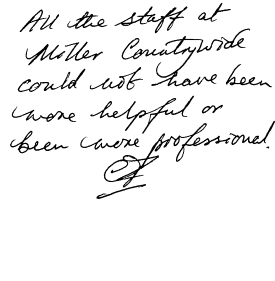 All the staff at
Miller Countrywide
could not have been
more helpful or
been more professional.